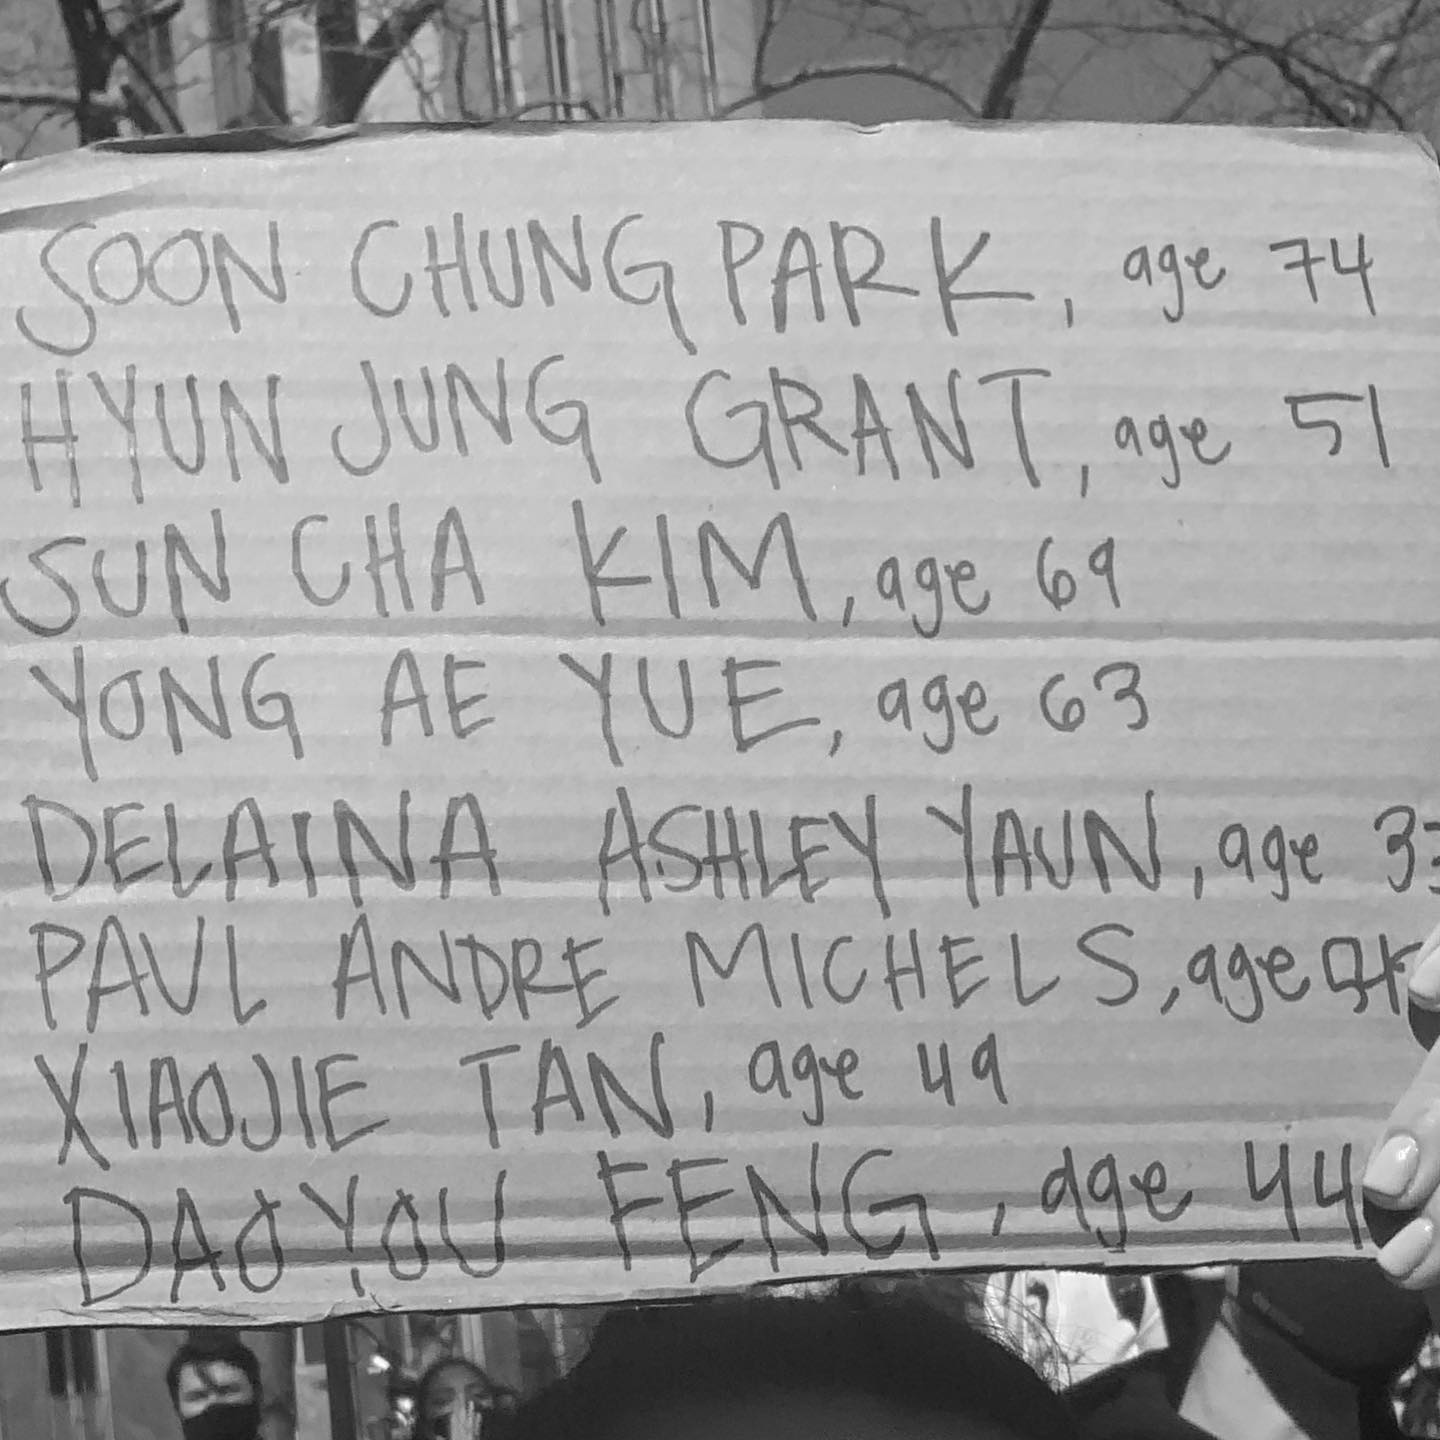 SOON CHUNG PARK, age 74
HYUN JUNG GRANT, age 51
SUN CHA KIM, age 69
YONG AE YUE, age 63
DELAINA ASHLEY YAUN, age
PAUL ANDRE MICHELS, age
XIAOJIE TAN, age 49
DAOYOU FENG, age 44